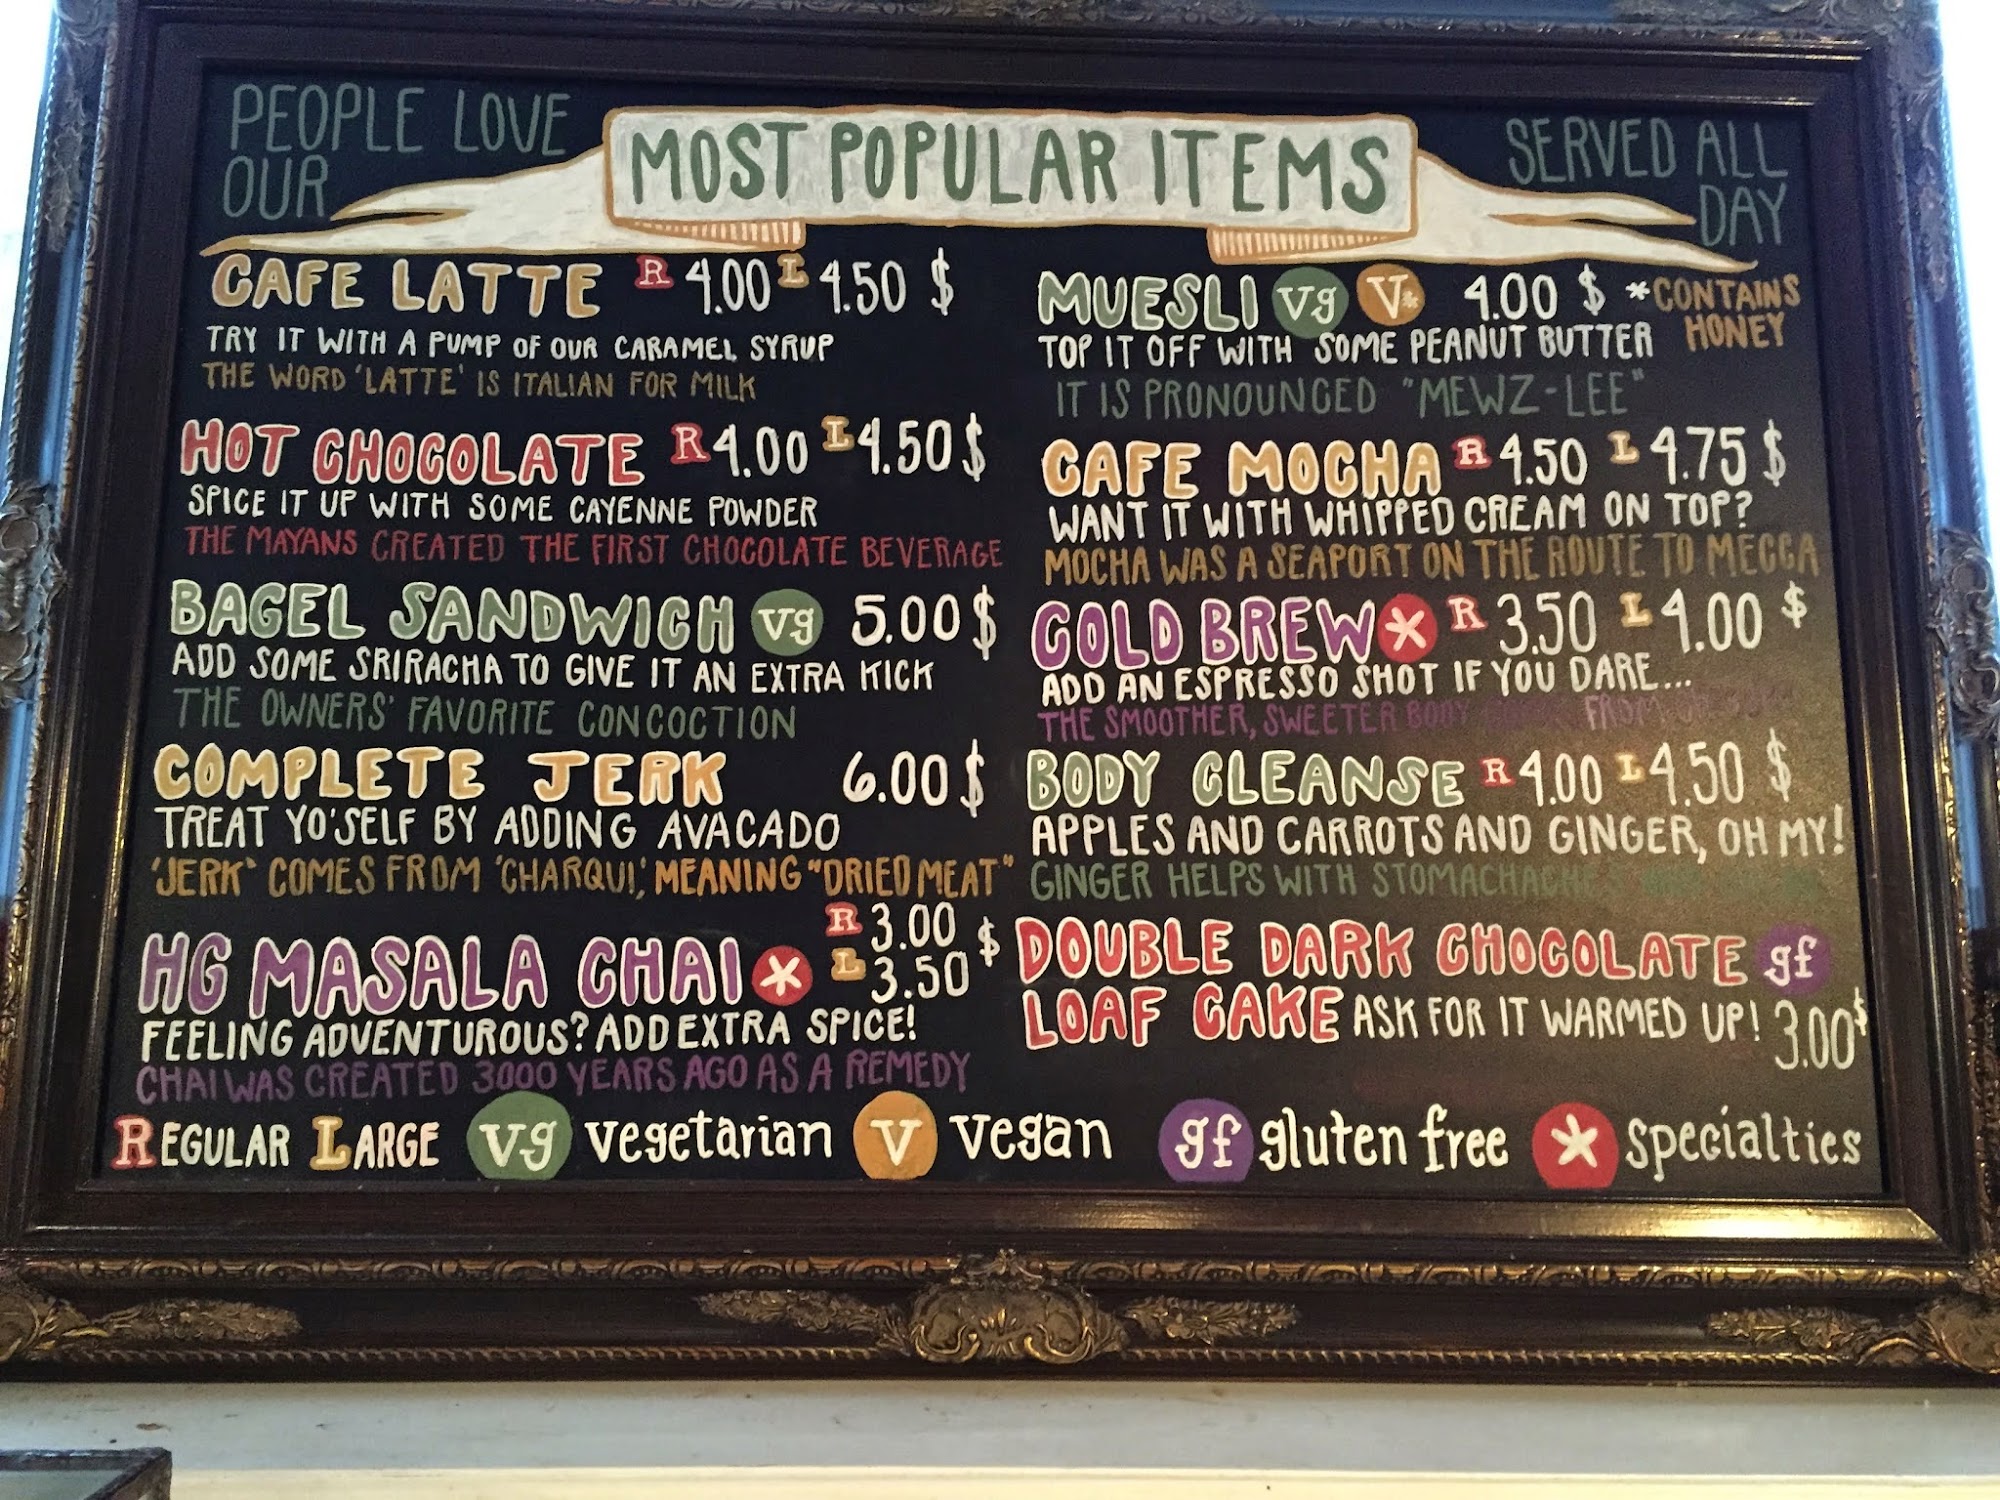 PEOPLE LOVE
OUR
MOST POPULAR ITEMS
SERVED ALL
DAY
CAFE LATTE R 4.00 L 4.50 $
TRY IT WITH A PUMP OF OUR CARAMEL SYRUP
THE WORD 'LATTE' IS ITALIAN FOR MILK
HOT CHOCOLATE R 4.00 L 4.50 $
SPICE IT UP WITH SOME CAYENNE POWDER
THE MAYANS CREATED THE FIRST CHOCOLATE BEVERAGE
BAGEL SANDWICH vg 5.00 $
ADD SOME SRIRACHA TO GIVE IT AN EXTRA KICK
THE OWNERS' FAVORITE CONCOCTION
COMPLETE JERK 6.00 $
TREAT YO'SELF BY ADDING AVACADO
'JERK' COMES FROM 'CHARQUI', MEANING "DRIED MEAT"
HG MASALA CHAI * R 3.00 $
L 3.50
FEELING ADVENTUROUS? ADD EXTRA SPICE!
CHAI WAS CREATED 3000 YEARS AGO AS A REMEDY
MUESLI vg V* 4.00 $ *CONTAINS
HONEY
TOP IT OFF WITH SOME PEANUT BUTTER
IT IS PRONOUNCED "MEWZ-LEE"
CAFE MOCHA R 4.50 L 4.75 $
WANT IT WITH WHIPPED CREAM ON TOP?
MOCHA WAS A SEAPORT ON THE ROUTE TO MECCA
COLD BREW * R 3.50 L 4.00 $
ADD AN ESPRESSO SHOT IF YOU DARE...
THE SMOOTHER, SWEETER BODY FROM
BODY CLEANSE R 4.00 L 4.50 $
APPLES AND CARROTS AND GINGER, OH MY!
GINGER HELPS WITH STOMACHACHES
DOUBLE DARK CHOCOLATE gf
LOAF CAKE ASK FOR IT WARMED UP! 3.00 $
REGULAR LARGE vg vegetarian V vegan gf gluten free * specialties